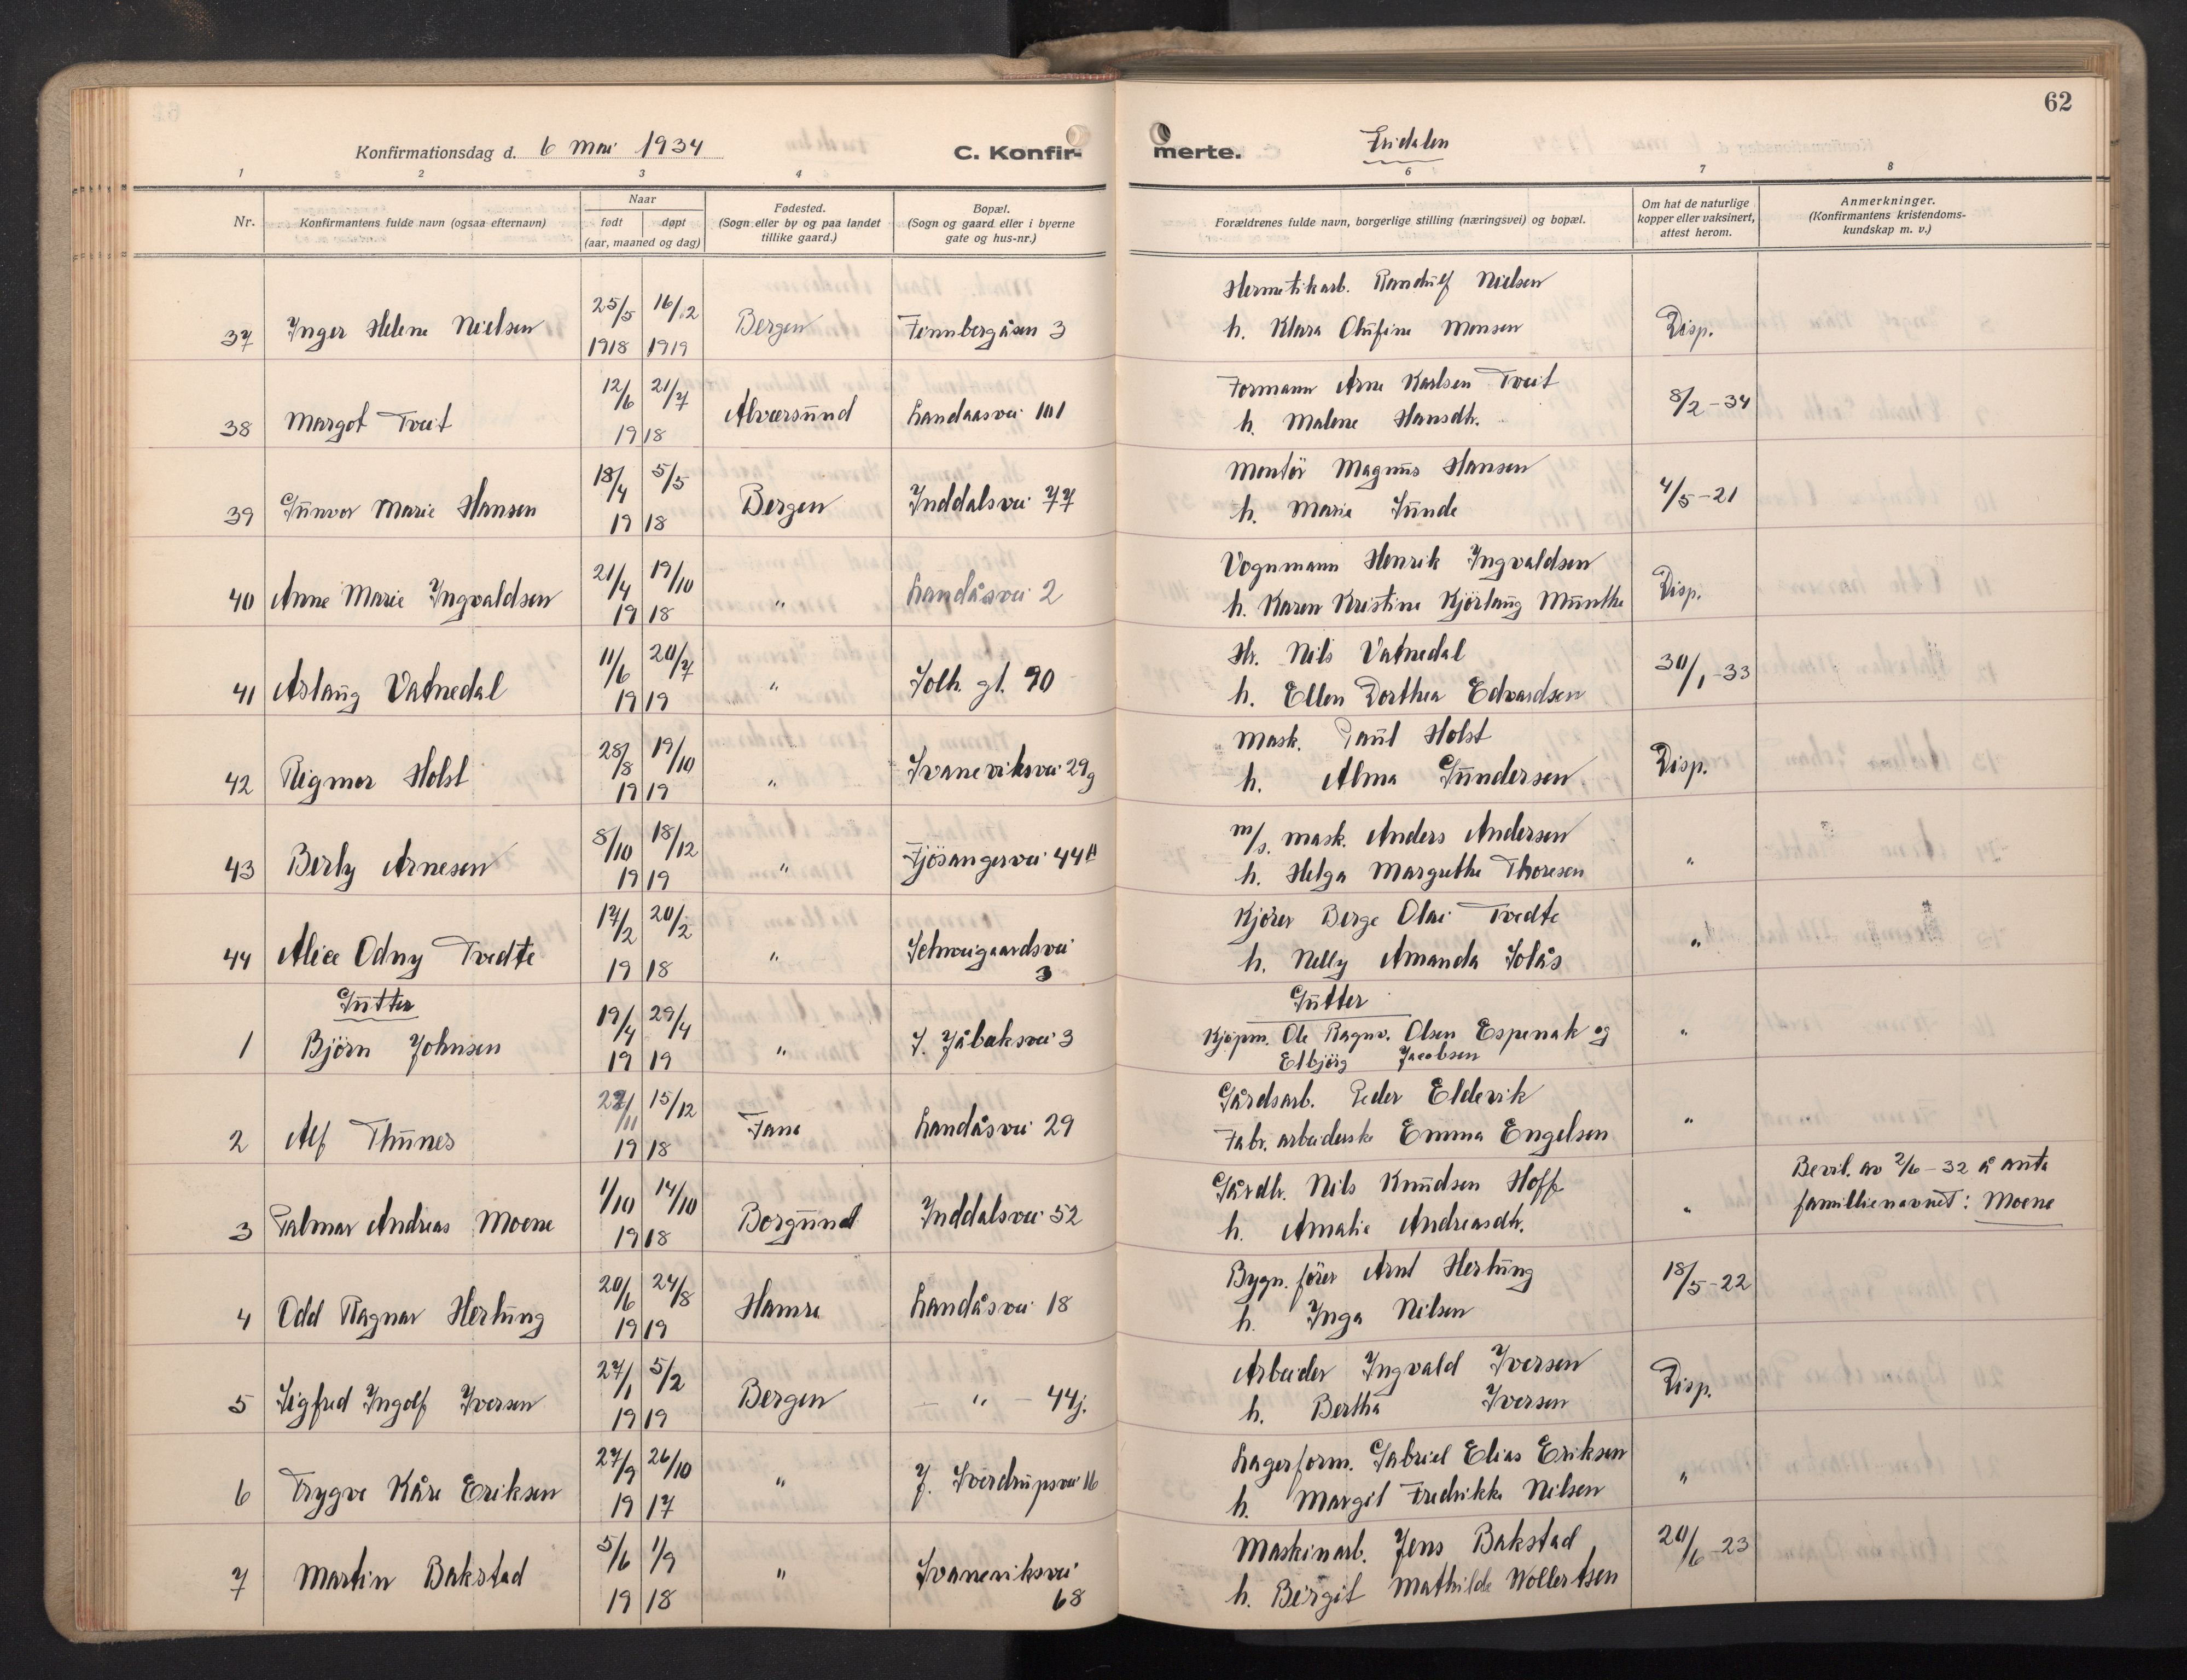 62
Konfirmationsdag d. 6 mai 1934 C. Konfir-
merte. Fridalen
1 2 3 4 6 7 8
Nr.
Konfirmantens fulde navn (ogsaa efternavn)
Naar
født døpt
(aar, maaned og dag)
Fødested.
(Sogn eller by og paa landet
tillike gaard.)
Bopæl.
(Sogn og gaard eller i byerne
gate og hus-nr.)
Forældrenes fulde navn, borgerlige stilling (næringsvei) og bopæl.
Om hat de naturlige
kopper eller vaksinert,
attest herom.
Anmerkninger.
(Konfirmantens kristendoms-
kundskap m. v.)
37 Inger Helene Nielsen 25/5 1918 16/2 1919 Bergen Finnbergåsen 3
Hermetikarb. Randulf Nielsen
h. Klara Olufine Monsen
Disp.
38 Margot Tveit 12/6 21/7 1918 Alversund Landaasvei 101
Formann Arne Karlsen Tveit
h. Malene Hansdh.
8/2-34
39 Gunvor Marie Hansen 18/4 5/5 1918 Bergen Inddalsvei 77
Montör Magnus Hansen
h. Marie Sunde
4/5-21
40 Anne Marie Ingvaldsen 21/4 19/10 1918 " Landåsvei 2
Vognmann Henrik Ingvaldsen
h. Karen Kristine Kjörlaug Munthe
Disp.
41 Aslaug Vatnedal 11/6 20/7 1919 " Solh. gt. 90
Hr. Nils Vatnedal
h. Ellen Dorthea Edvardsen
30/1-33
42 Rigmor Holst 28/8 19/10 1919 " Svaneviksvei 29g
Mask. Paul Holst
h. Alma Gundersen
Disp.
43 Berly Arnesen 8/10 18/12 1919 " Fjösangervei 44A
m/s. mask. Anders Andersen
h. Helga Margrethe Thoresen
"
44 Alice Odny Tvedte 17/2 20/2 1918 " Schweigaardsvei
3
Kjörer Berge Olai Tvedte
h. Nelly Amanda Solås
"
Gutter
Gutter
1 Björn Johnsen 19/4 29/4 1919 " J. Jåbaksvei 3
Kjöpm. Ole Ragnv. Olsen Espenak og
Elbjörg Jacobsen
"
2 Alf Thunes 27/11 15/12 1918 Fana Landåsvei 29
Gårdsarb. Peder Eldevik
Fabr. arbeiderske Emma Engelsen
"
3 Palmar Andreas Moene 1/10 14/10 1918 Borgund Inddalsvei 52
Gårdbr. Nils Knudsen Hoff
h. Amalie Andreasdh.
"
Bevil. av 2/6-32 å anta
familienavnet: Moene
4 Odd Ragnar Hertung 20/6 24/8 1919 Hamre Landåsvei 18
Bygn. förer Arnt Hertung
h. Inga Nilsen
18/5-22
5 Sigfred Ingolf Iversen 27/1 5/2 1919 Bergen — " — 44j.
Arbeider Ingvald Iversen
h. Bertha Iversen
Disp.
6 Trygve Kåre Eriksen 27/9 26/10 1917 " J. Sverdrupsvei 16
Lagerform. Gabriel Elias Eriksen
h. Margit Fredrikke Nilsen
"
7 Martin Bakstad 5/6 1/9 1918 " Svaneviksvei
68
Maskinarb. Jens Bakstad
h. Birgit Mathilde Wollertsen
20/6-23